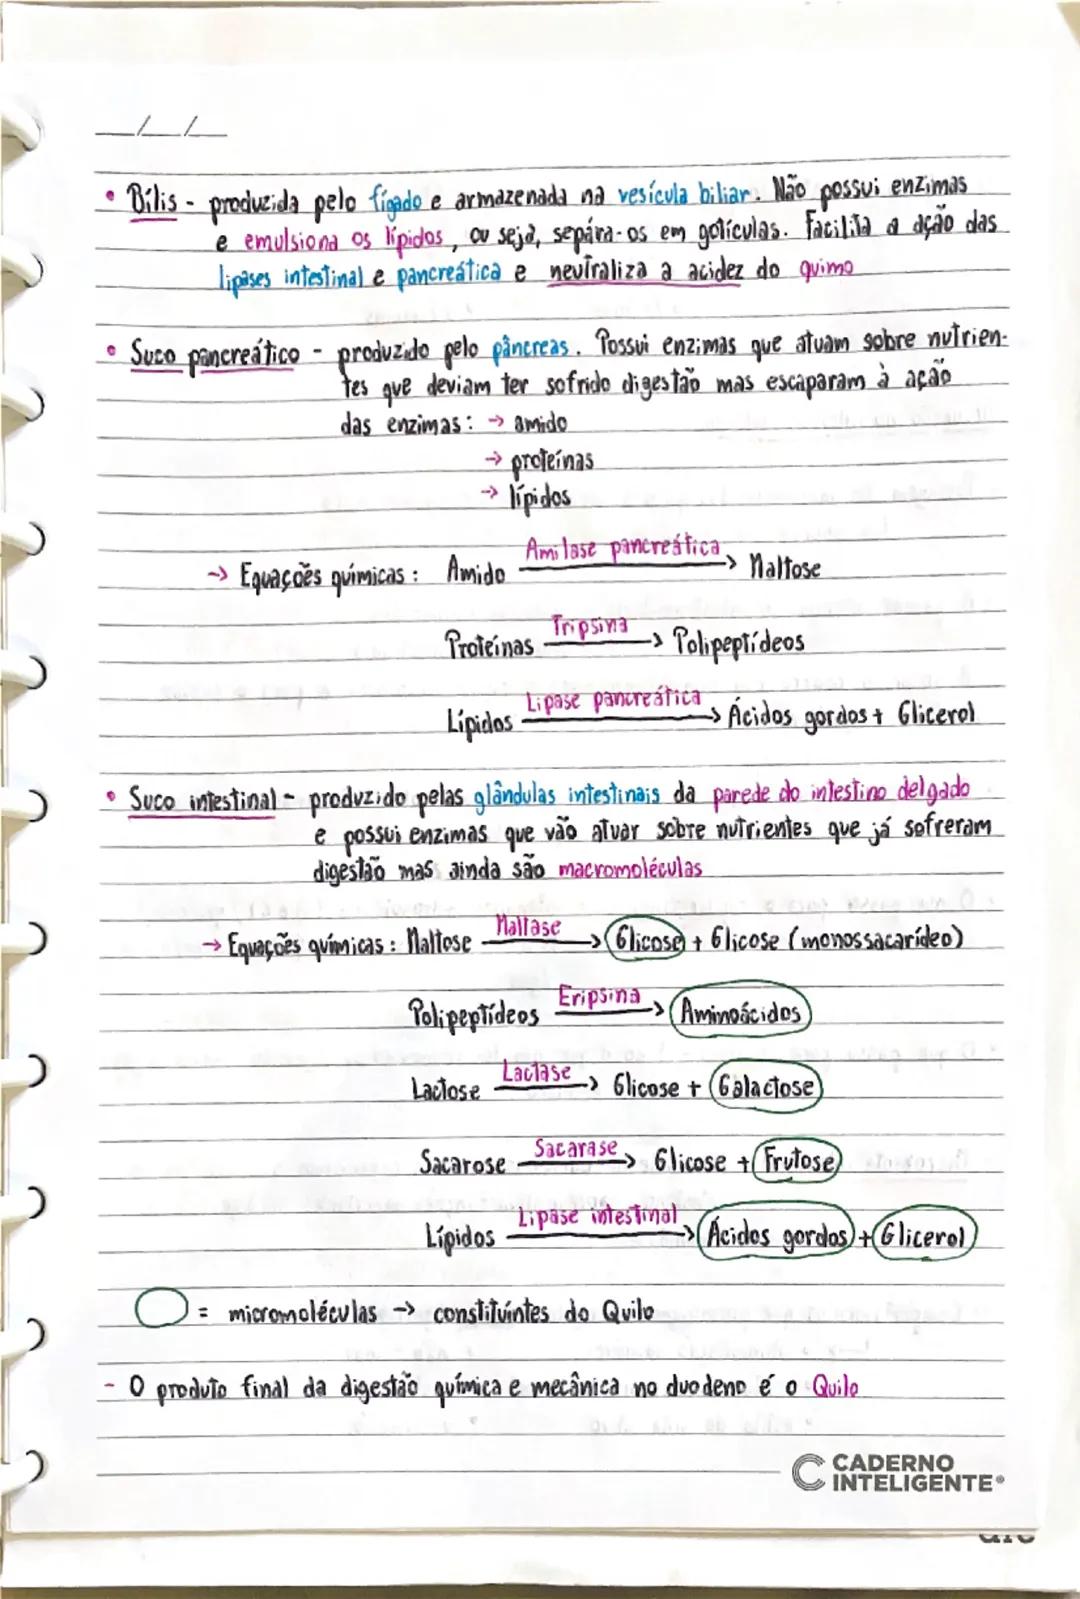 __/__/__
• Bílis - produzida pelo fígado e armazenada na vesícula biliar. Não possui enzimas
e emulsiona os lípidos, ou seja, sepára-os em gotículas. Facilita a ação das
lipases intestinal e pancreática e neutraliza a acidez do quimo
• Suco pancreático - produzido pelo pâncreas. Possui enzimas que atuam sobre nutrien-
tes que deviam ter sofrido digestão mas escaparam à ação
das enzimas: → amido
→ proteínas
→ lípidos
→ Equações químicas: Amido Amilase pancreática → Maltose
Proteínas Tripsina → Polipeptídeos
Lípidos Lipase pancreática → Ácidos gordos + Glicerol
• Suco intestinal - produzido pelas glândulas intestinais da parede do intestino delgado
e possui enzimas que vão atuar sobre nutrientes que já sofreram
digestão mas ainda são macromoléculas
→ Equações químicas: Maltose Maltase → Glicose + Glicose (monossacarídeo)
Polipeptídeos Eripsina → Aminoácidos
Lactose Lactase → Glicose + Galactose
Sacarose Sacarase → Glicose + Frutose
Lípidos Lipase intestinal → Ácidos gordos + Glicerol
= micromoléculas → constituíntes do Quilo
- O produto final da digestão química e mecânica no duodeno é o Quilo
CADERNO
INTELIGENTE®